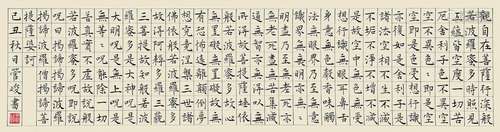 觀自在菩薩行深般
若波羅蜜多時照見
五蘊皆空度一切苦
厄舍利子色不異空
空不異色：即是空
空即是色受想行識
亦復如是舍利子是
諸法空相不生不滅
不垢不淨不增不減
是故空中無色無受
想行識無眼耳鼻舌
身意無色聲香味觸
法無眼界乃至無意
識界無無明亦無無
明盡乃至無老死亦
無老死盡無苦集滅
道無智亦無得以無
所得故菩提薩埵依
般若波羅蜜多故心
無罣礙無罣礙故無
有恐怖遠離顛倒夢
想究竟涅槃三世諸
佛依般若波羅蜜多
故得阿耨多羅三藐
三菩提故知般若波
羅蜜多是大神咒是
大明咒是無上咒是
無等：咒能除一切
苦真實不虛故說般
若波羅蜜多咒即說
咒曰揭諦揭諦波羅
揭諦波羅僧揭諦菩
提薩婆訶
己丑秋日管峻書